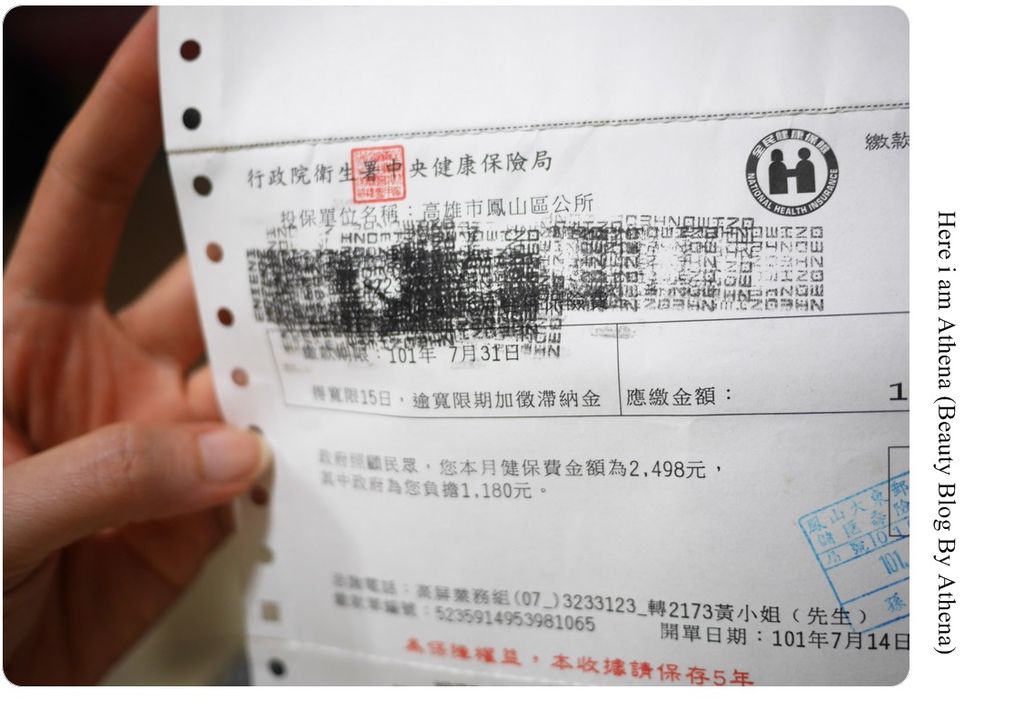 行政院衛生署中央健康保險局
全民健康保險
NATIONAL HEALTH INSURANCE
繳款
投保單位名稱：高雄市鳳山區公所
保險費
繳款期限：101年 7月31日
得寬限15日，逾寬限期加徵滯納金
應繳金額：
1
政府照顧民眾，您本月健保費金額為2,498元，
其中政府為您負擔1,180元。
鳳山大東郵
101.
孫
洽詢電話：高屏業務組(07_)3233123_轉2173黃小姐（先生）
繳款單編號：5235914953981065
開單日期：101年7月14日
為保障權益，本收據請保存5年
Here i am Athena (Beauty Blog By Athena)